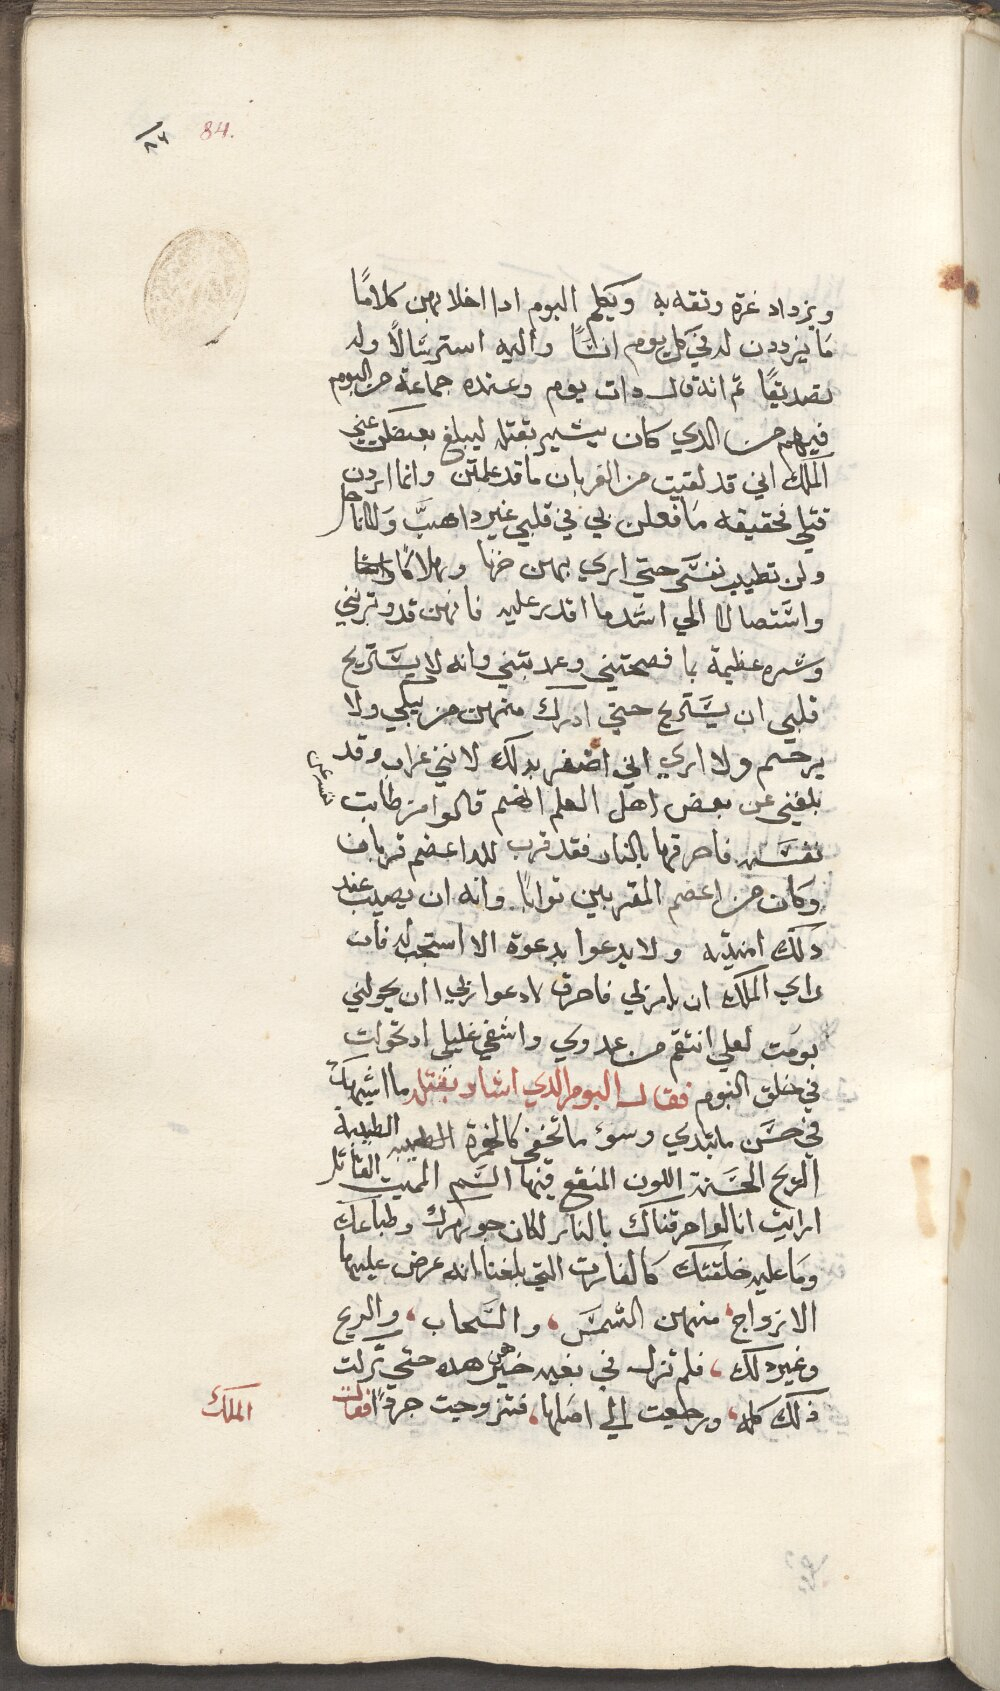 84.
٨٤
ويزداد غرة وثقه به ويكلم البوم اذا اخلا بهن كلامًا
ما يزددن له في كل يوم انسًا واليه استرسالًا وله
تصديقًا ثم انه قال دات يوم وعنده جماعة من البوم
فيهم من الدي كان يشير بقتله ليبلغ بعضكن عني
الملك اني قد لقيت من الغربان ما قد علمتن وانما اردن
قتلي فحقيقه ما فعلن بي في قلبي غير داهبَّ
ولن تطيب نفسي حتي اري بهن خزيا وهلاكًا
واستصالا الي اشد ما اقدر عليه فانهن قد وترنني
وشره عظيمة با فصحتيني وعدبتني وانه لا يستريح
قلبي ان يستريح حتي ادرك منهن من يبكي ولا
يرحم ولا اري اني اضفر بدلك لانني غراب وقد
بلغني عن بعض اهل العلم انهم قالوا من طابت
نفسه فاحرقها بالنار فقد قرب لله اعضم قربان
وكان من اعضم المقربين ثوابًا وانه ان يصيب عند
دلك امنيته ولا يدعوا بدعوة الا استجب له فان
راي الملك ان يامر بي فاحرق لادعوا ربي ان يحولني
بومت لعلي انتقم من عدوي واشفي غليلي اد تحولت
في خلق البوم فقال البوم الدي اشار بقتله ما اشبهك
في حسن ما تبدي وسوء ما تخفي كالخمرة الطيبه الطيبة
الريح الحسنة اللون المنقع فيها السم المميت القاتل
ارايت انا لو احرقناك بالنار لكان جوهرك وطباعك
وما عليه خلقتك كالفارت التي بلغنا انه عرض عليها
الازواج، منهن الشمس، والسحاب، والريح
وغير دلك، فلم تزل في بغيه خيرهن هده حتي تركت
ذلك كله، ورجعت الي اصلها، فتزوجت جردًا فقال
الملك